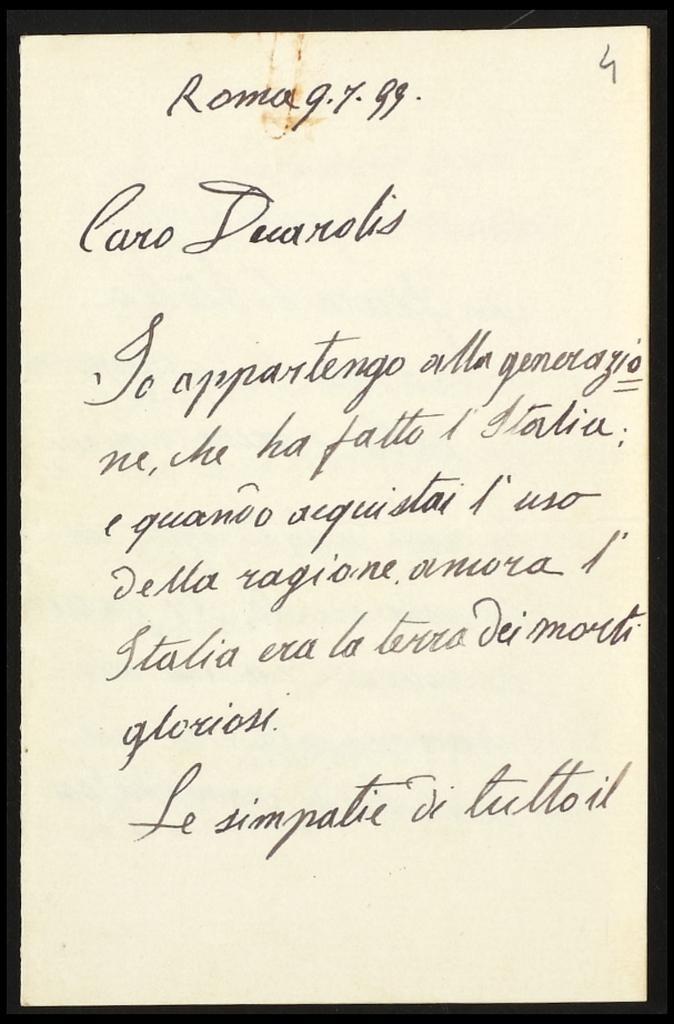 4
Roma 9.7.99.
Caro Decarolis
Io appartengo alla generazio
ne, che ha fatto l'Italia;
e quando acquistai l'uso
della ragione, ancora l'
Italia era la terra dei morti
gloriosi.
Le simpatie di tutto il